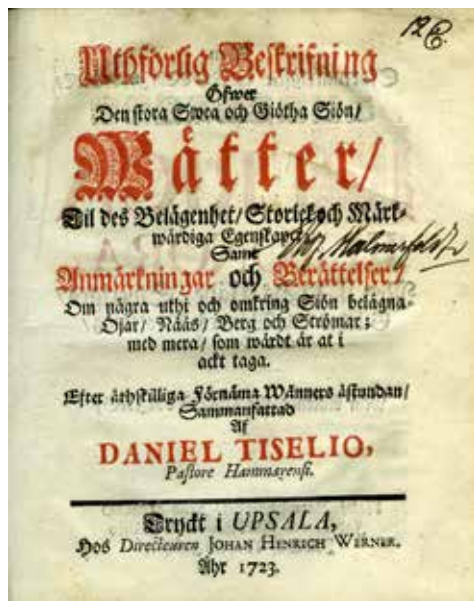 12
Uthförlig Beskrifning
Öfwer
Den stora Swea och Giötha Siön/
Wätter/
Til des Belägenhet/ Storlek och Märk-
wärdiga Egenskaper/
Samt
Anmärkningar och Berättelser/
Om några uthi och omkring Siön belägna
Öjar/ Nääs/ Berg och Strömar;
med mera/ som wärdt är at i
ackt taga.
Efter åthskilliga Förnäma Wänners åstundan/
Sammanfattad
Af
DANIEL TISELIO,
Pastore Hammarensi.
Tryckt i UPSALA,
Hos Directeuren JOHAN HENRICH WERNER.
Åhr 1723.